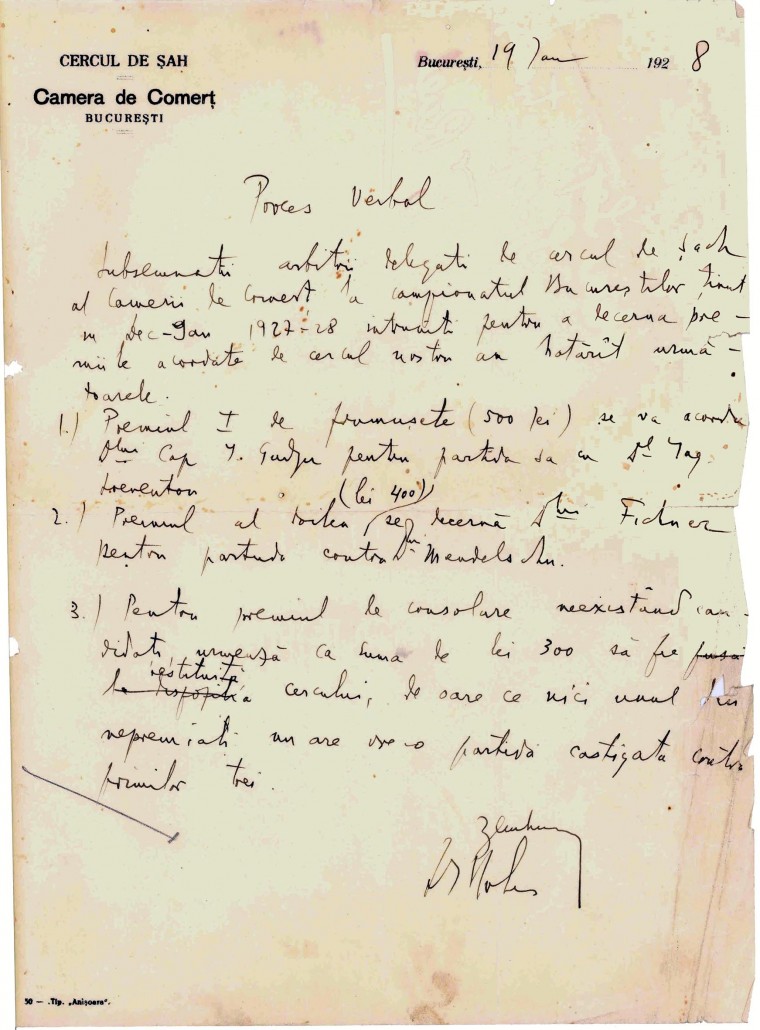 CERCUL DE ȘAH
Camera de Comerț
BUCUREȘTI
București, 19 Jan 1928
Proces Verbal
Subsemnatii arbitrii delegati de cercul de șach
al Camerii de Comert la campionatul Bucureștilor ținut
in Dec-Jan 1927-28 intruniti pentru a decerna pre-
miile acordate de cercul nostru au hotărît urmă-
toarele.
1.) Premiul I de frumusete (500 lei) se va acorda
Dlui Cap J. Gudju pentru partida sa cu Dl
(lei 400)
2.) Premiul al doilea se decernă Dlui
pentru partida contra Dlui Mendelsohn.
3.) Pentru premiul de consolare neexistând can-
didati, urmează ca suma de lei 300 să fie pusă
restituită
la dispoziția cercului, de oare ce nici unul din
nepremiati nu are vre-o partidă castigată contra
primilor trei.
50 — Tip. „Anișoara".